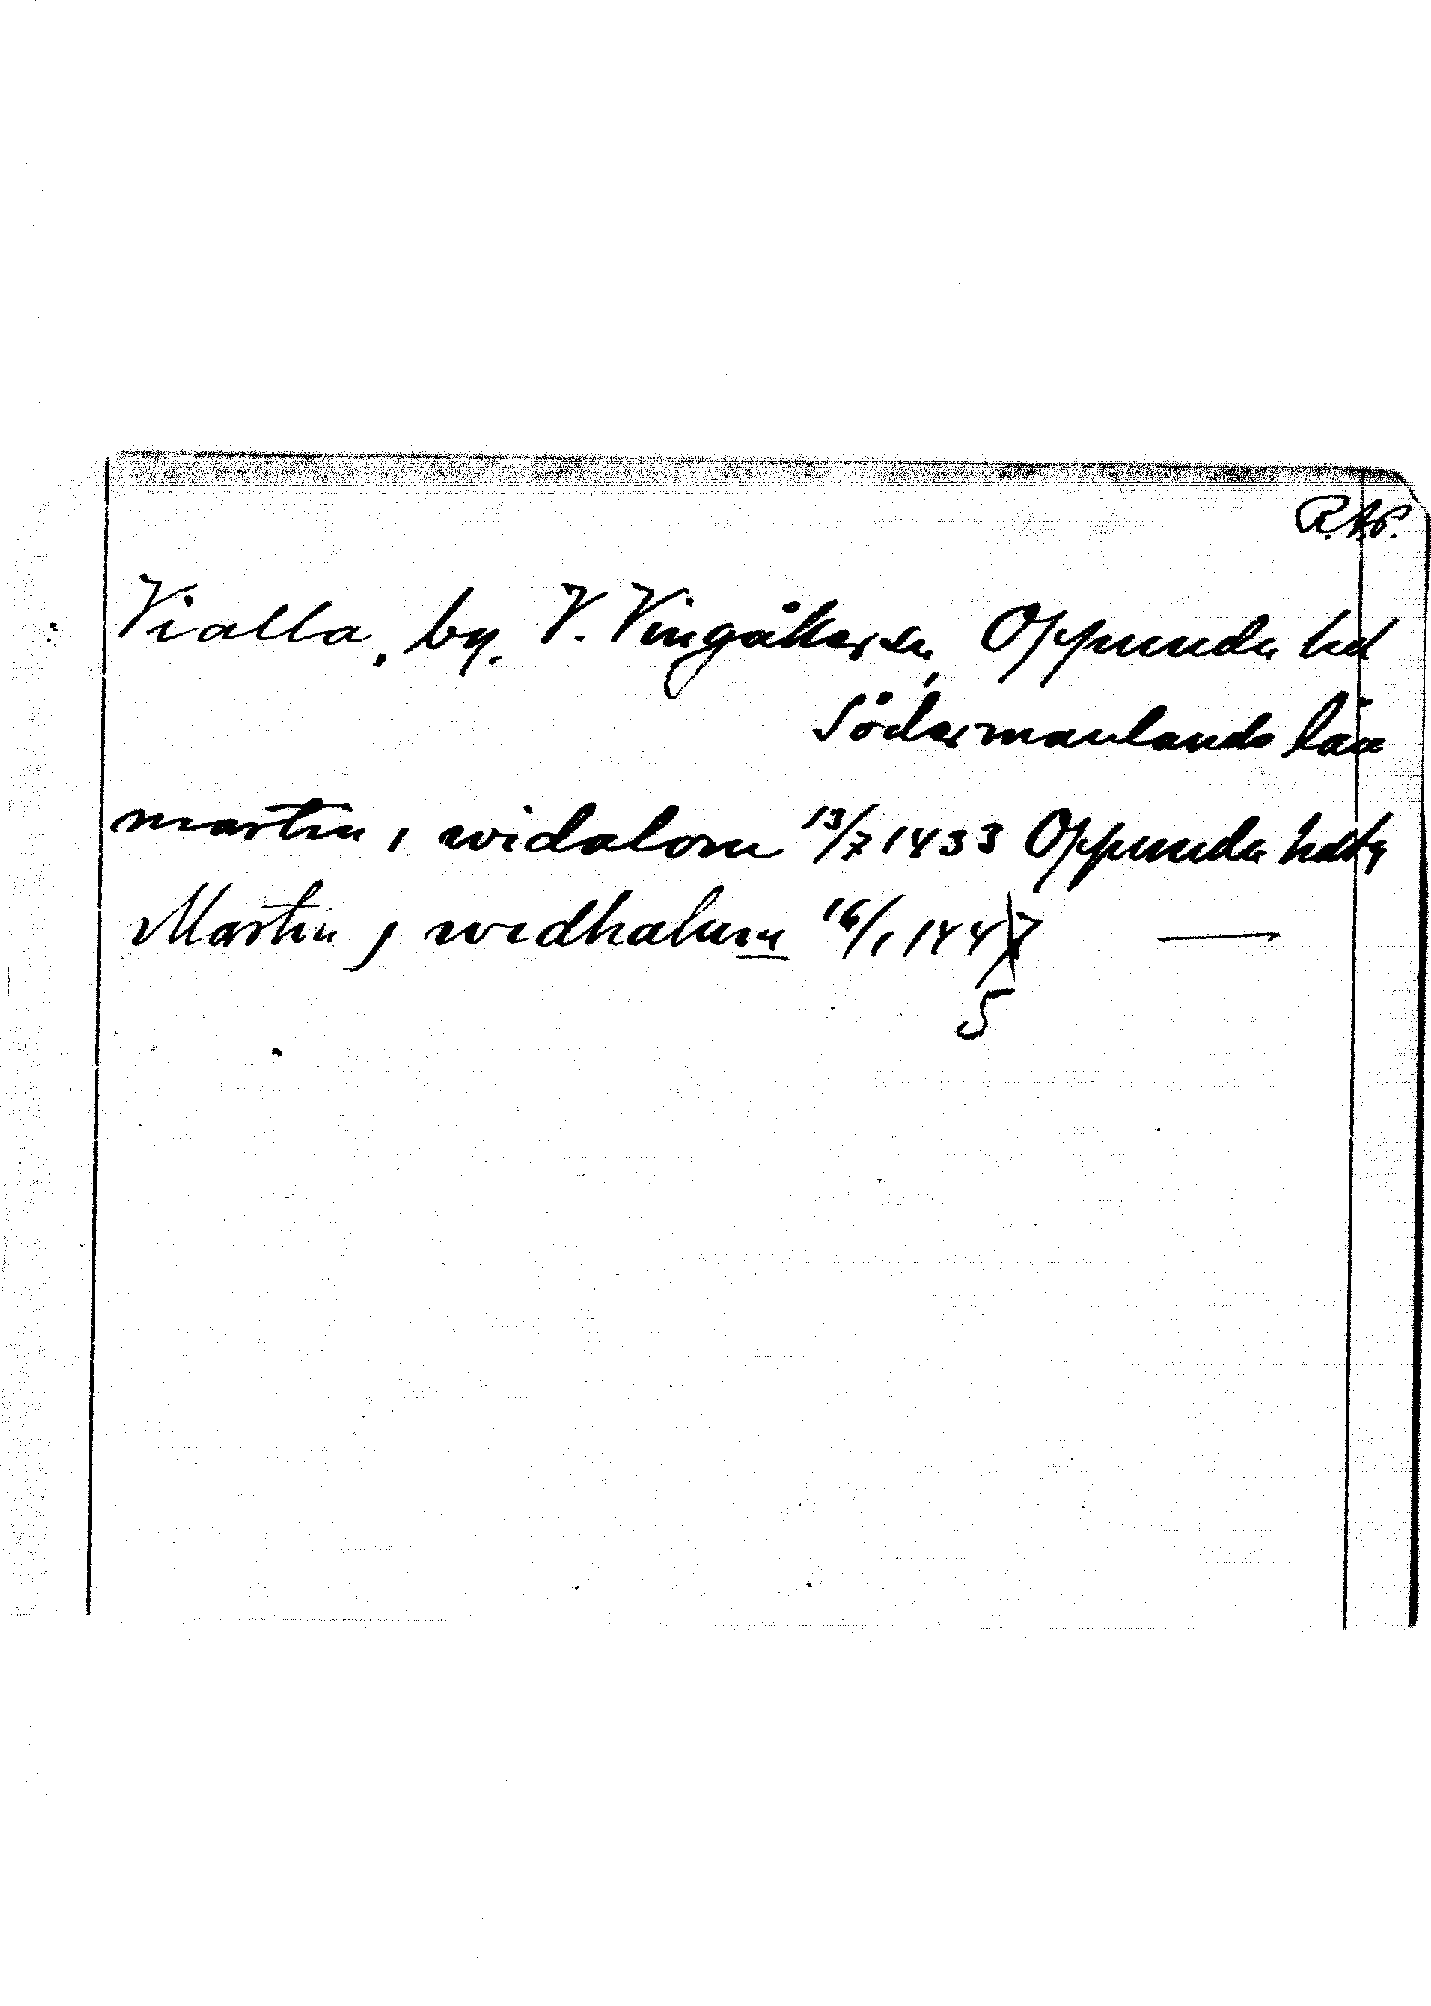 R.A.P.
Vialla, by. V. Vingåkers sn, Oppunda hd
Södermanlands län
martin i widalom 13/7 1433 Oppunda hd
Martin j widhalum 16/1 1447 —
5